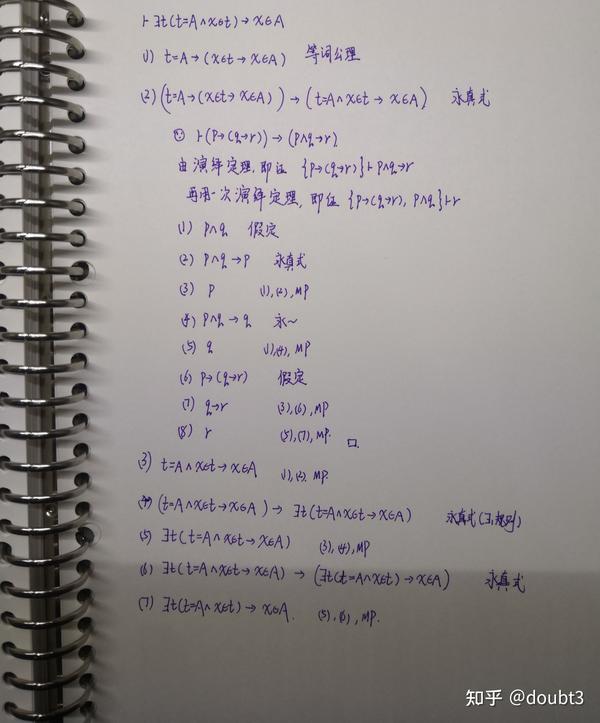 ⊢ ∃t(t=A∧x∈t)→x∈A
(1) t=A→(x∈t→x∈A) 等词公理
(2) (t=A→(x∈t→x∈A))→(t=A∧x∈t→x∈A) 永真式
⊢(p→(q→r))→(p∧q→r)
由演绎定理,即证 {p→(q→r)}⊢p∧q→r
再用一次演绎定理,即证 {p→(q→r), p∧q}⊢r
(1) p∧q 假定
(2) p∧q→p 永真式
(3) p (1),(2),MP
(4) p∧q→q 永~
(5) q (1),(4),MP
(6) p→(q→r) 假定
(7) q→r (3),(6),MP
(8) r (5),(7),MP. □
(3) t=A∧x∈t→x∈A (1),(2).MP.
(4) (t=A∧x∈t→x∈A)→∃t(t=A∧x∈t→x∈A) 永真式(∃₁规则)
(5) ∃t(t=A∧x∈t→x∈A) (3),(4),MP
(6) ∃t(t=A∧x∈t→x∈A)→(∃t(t=A∧x∈t)→x∈A) 永真式
(7) ∃t(t=A∧x∈t)→x∈A. (5),(6),MP.
知乎 @doubt3